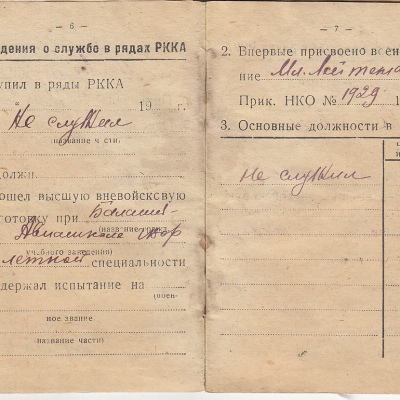 — 6 —
дения о службе в рядах РККА
упил в ряды РККА
19 г.
Не служил
название ч сти.
Должн.
ошел высшую вневойсквую
готовку при
(название
учебного заведения)
летной специальности
держал испытание на
(воен-
ное звание
название части)
— 7 —
2. Впервые присвоено воен
ние Мл. Лейтена
Прик. НКО № 1929 1
3. Основные должности в
Не служил